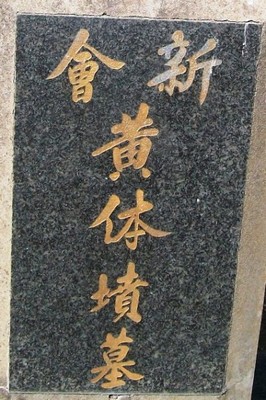 新會
黄体墳墓